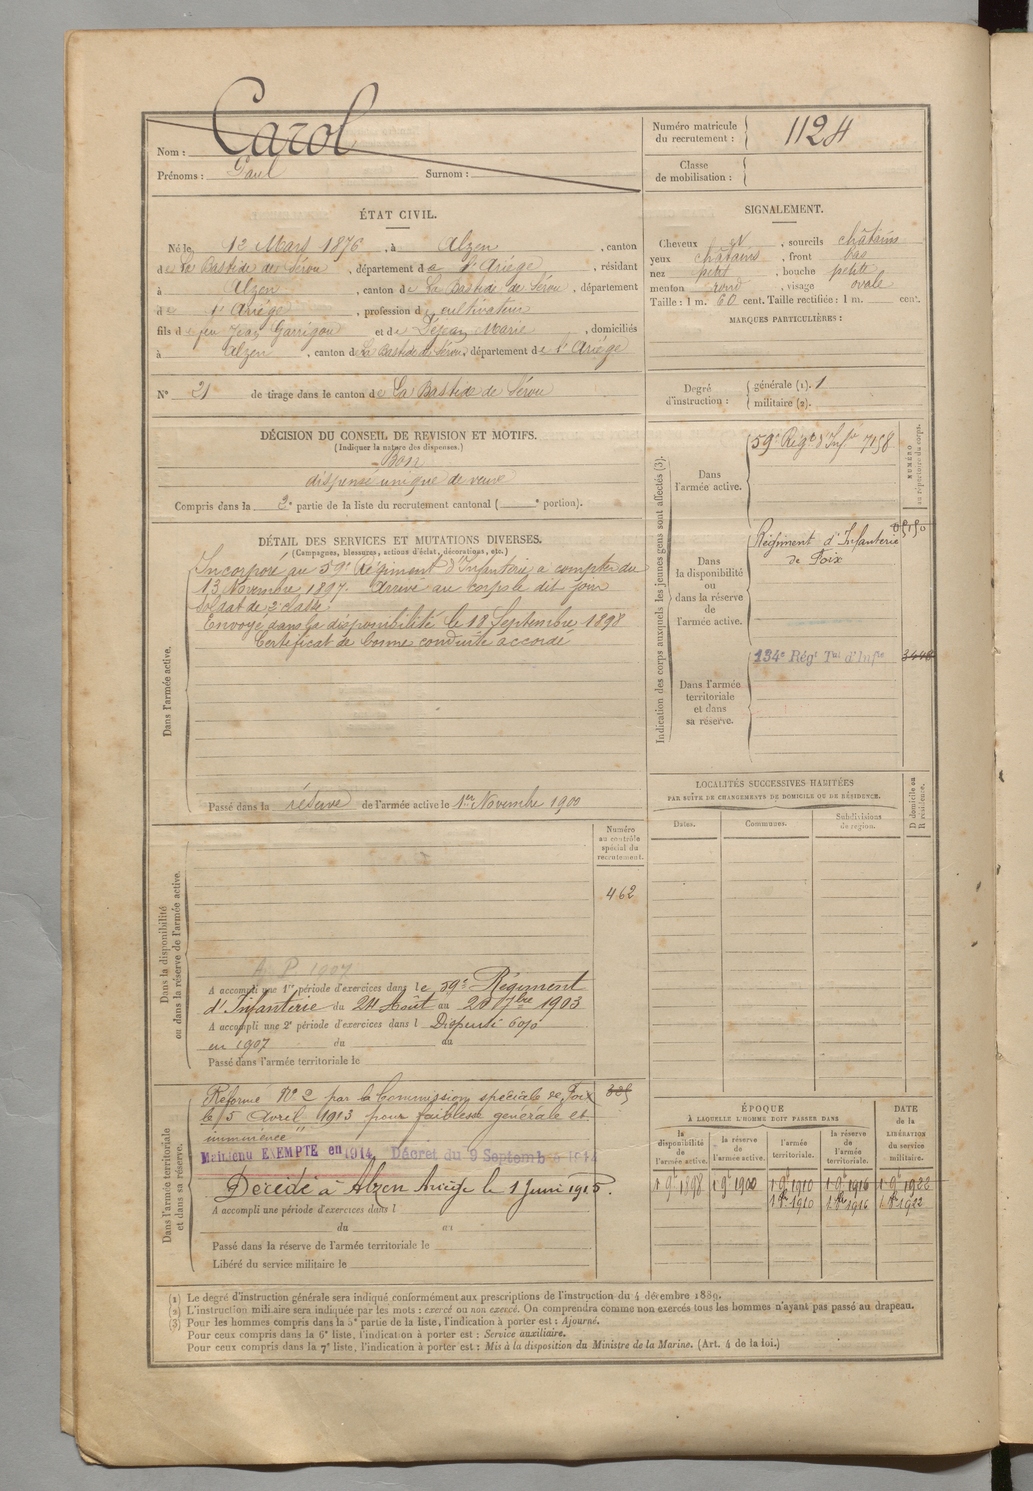 Nom : Carol
Prénoms : Paul Surnom :
Numéro matricule du recrutement : 1124
Classe de mobilisation :
ÉTAT CIVIL.
Né le 12 Mars 1876, à Alzen, canton
de La Bastide de Sérou, département de l'Ariége, résidant
à Alzen, canton de La Bastide de Sérou, département
de l'Ariége, profession de cultivateur
fils de feu Jean Garrigou et de Déjean Marie, domiciliés
à Alzen, canton de La Bastide de Sérou, département de l'Ariége
N° 21 de tirage dans le canton de La Bastide de Sérou
SIGNALEMENT.
Cheveux et, sourcils châtains
yeux châtains, front bas
nez petit, bouche petite
menton rond, visage ovale
Taille : 1 m. 60 cent. Taille rectifiée : 1 m. cent.
MARQUES PARTICULIÈRES :
Degré d'instruction : générale (1). 1
militaire (2).
DÉCISION DU CONSEIL DE REVISION ET MOTIFS.
(Indiquer la nature des dispenses.)
Bon
dispensé unique de veuve
Compris dans la 2e partie de la liste du recrutement cantonal ( e portion).
DÉTAIL DES SERVICES ET MUTATIONS DIVERSES.
(Campagnes, blessures, actions d'éclat, décorations, etc.)
Dans l'armée active.
Incorporé au 59e Régiment d'Infanterie à compter du
13 Novembre 1897. Arrivé au corps le dit jour
Soldat de 2e classe.
Envoyé dans la disponibilité le 18 Septembre 1898
Certificat de bonne conduite accordé
Passé dans la réserve de l'armée active le 1er Novembre 1900
Indication des corps auxquels les jeunes gens sont affectés (3).
NUMÉRO au répertoire du corps.
Dans l'armée active.
59e Régt d'Infie 7158
Dans la disponibilité ou dans la réserve de l'armée active.
Régiment d'Infanterie
de Foix
Dans l'armée territoriale et dans sa réserve.
134e Régt Tal d'Infie 3448
LOCALITÉS SUCCESSIVES HABITÉES
PAR SUITE DE CHANGEMENTS DE DOMICILE OU DE RÉSIDENCE.
Dates. Communes. Subdivisions de région. D domicile ou R résidence.
Numéro au contrôle spécial du recrutement.
462
Dans la disponibilité ou dans la réserve de l'armée active.
A. P. 1907
A accompli une 1re période d'exercices dans le 59e Régiment
d'Infanterie du 24 Août au 20 7bre 1903
A accompli une 2e période d'exercices dans l Dispensé 6%
en 1907 du au
Passé dans l'armée territoriale le
Dans l'armée territoriale et dans sa réserve.
Réformé N° 2 par la Commission spéciale de Foix
le 15 Avril 1913 pour faiblesse générale et
imminence"
Maintenu EXEMPTE en 1914 Décret du 9 Septembre 1914
Décédé à Alzen Ariège le 1 Juin 1915.
A accompli une période d'exercices dans l
du au
Passé dans la réserve de l'armée territoriale le
Libéré du service militaire le
ÉPOQUE
À LAQUELLE L'HOMME DOIT PASSER DANS
DATE de la LIBÉRATION du service militaire.
la disponibilité de l'armée active. la réserve de l'armée active. l'armée territoriale. la réserve de l'armée territoriale.
1 9bre 1898 1 9bre 1900 1 9bre 1910 1 9bre 1916 1 9bre 1922
(1) Le degré d'instruction générale sera indiqué conformément aux prescriptions de l'instruction du 4 décembre 1889.
(2) L'instruction militaire sera indiquée par les mots : exercé ou non exercé. On comprendra comme non exercés tous les hommes n'ayant pas passé au drapeau.
(3) Pour les hommes compris dans la 5e partie de la liste, l'indication à porter est : Ajourné.
Pour ceux compris dans la 6e liste, l'indication à porter est : Service auxiliaire.
Pour ceux compris dans la 7e liste, l'indication à porter est : Mis à la disposition du Ministre de la Marine. (Art. 4 de la loi.)